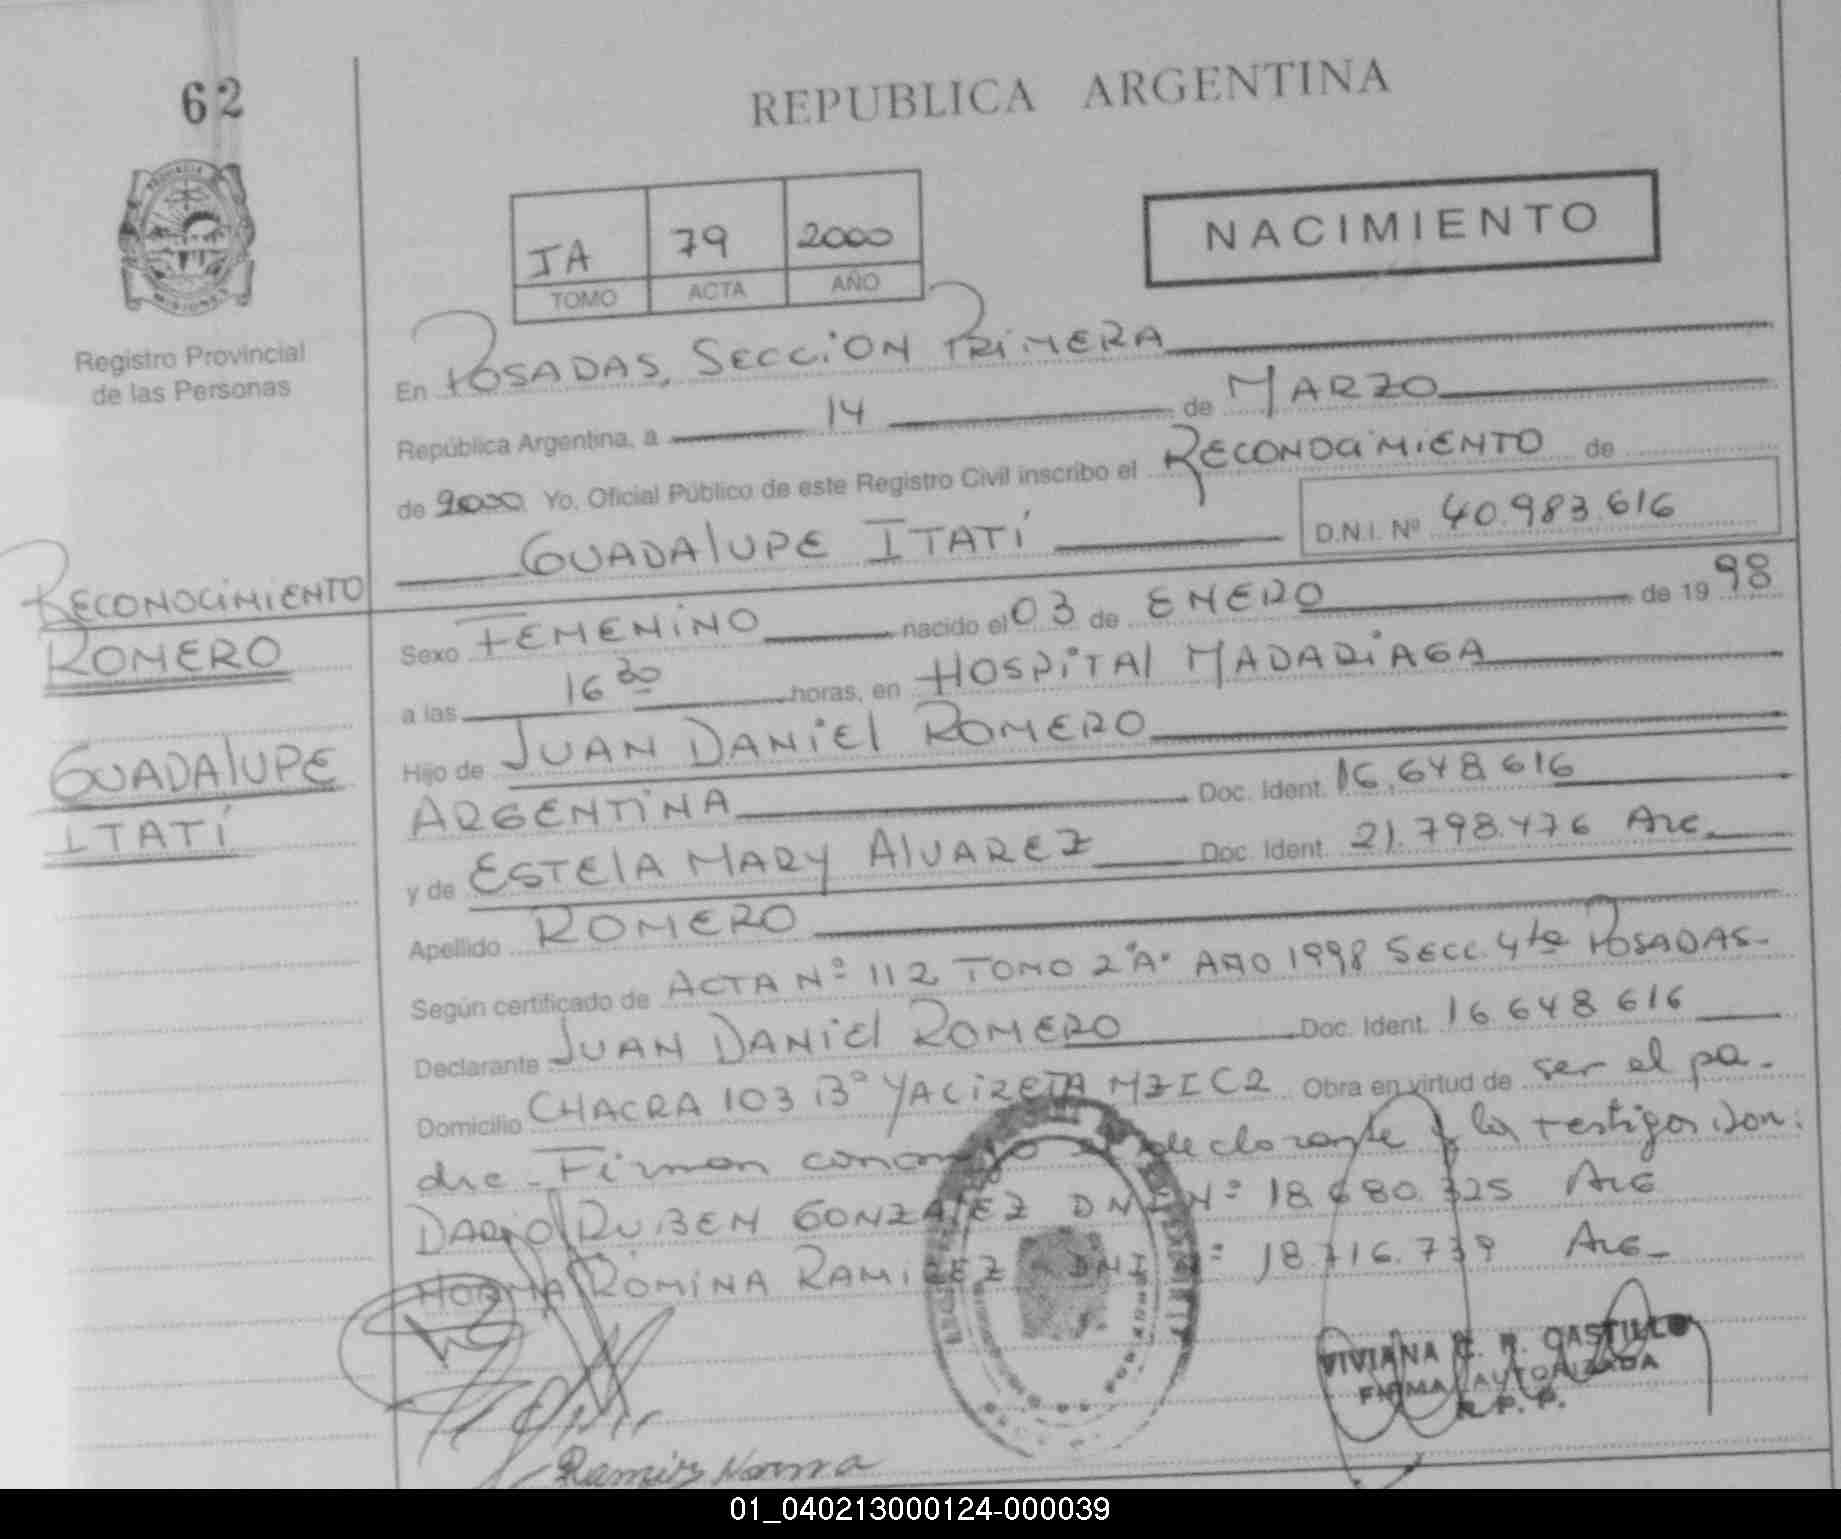 62
REPUBLICA ARGENTINA
NACIMIENTO
79 2000
TOMO ACTA AÑO
Registro Provincial
de las Personas
En POSADAS, SECCiON PRiMERA
República Argentina, a 14 de MARZO
de 2000 Yo, Oficial Público de este Registro Civil inscribo el RECONOCiMiENTO de
GUADAlUPE ITATí D.N.I. Nº 40.983.616
RECONOCiMiENTO
ROMERO
GUADAlUPE
ITATí
Sexo FEMENiNO nacido el 03 de ENERO de 1998
a las 16 30 horas, en HOSPiTAl MADARiAGA
Hijo de JUAN DANiEl ROMERO
ARGENTiNA Doc. Ident. 16.648.616
y de ESTElA MARY AlVAREZ Doc. Ident. 21.798.476 ARG.
Apellido ROMERO
Según certificado de ACTA Nº 112 TOMO 2ºAº AÑO 1998 SECC. 4ta POSADAS-
Declarante JUAN DANiEl ROMERO Doc. Ident. 16 648 616
Domicilio CHACRA 103 Bº YACiRETA MZ I C2 Obra en virtud de ser el pa-
dre - Firman conmigo el declarante y los testigos son:
DARiO RUBEN GONZAlEZ DNI Nº 18.680.325 ARG
NORMA ROMiNA RAMiREZ DNI Nº 18.716.739 ARG-
VIVIANA C. R. CASTILLO
FIRMA AUTORIZADA
R. P. P.
Ramirez Norma
01_040213000124-000039